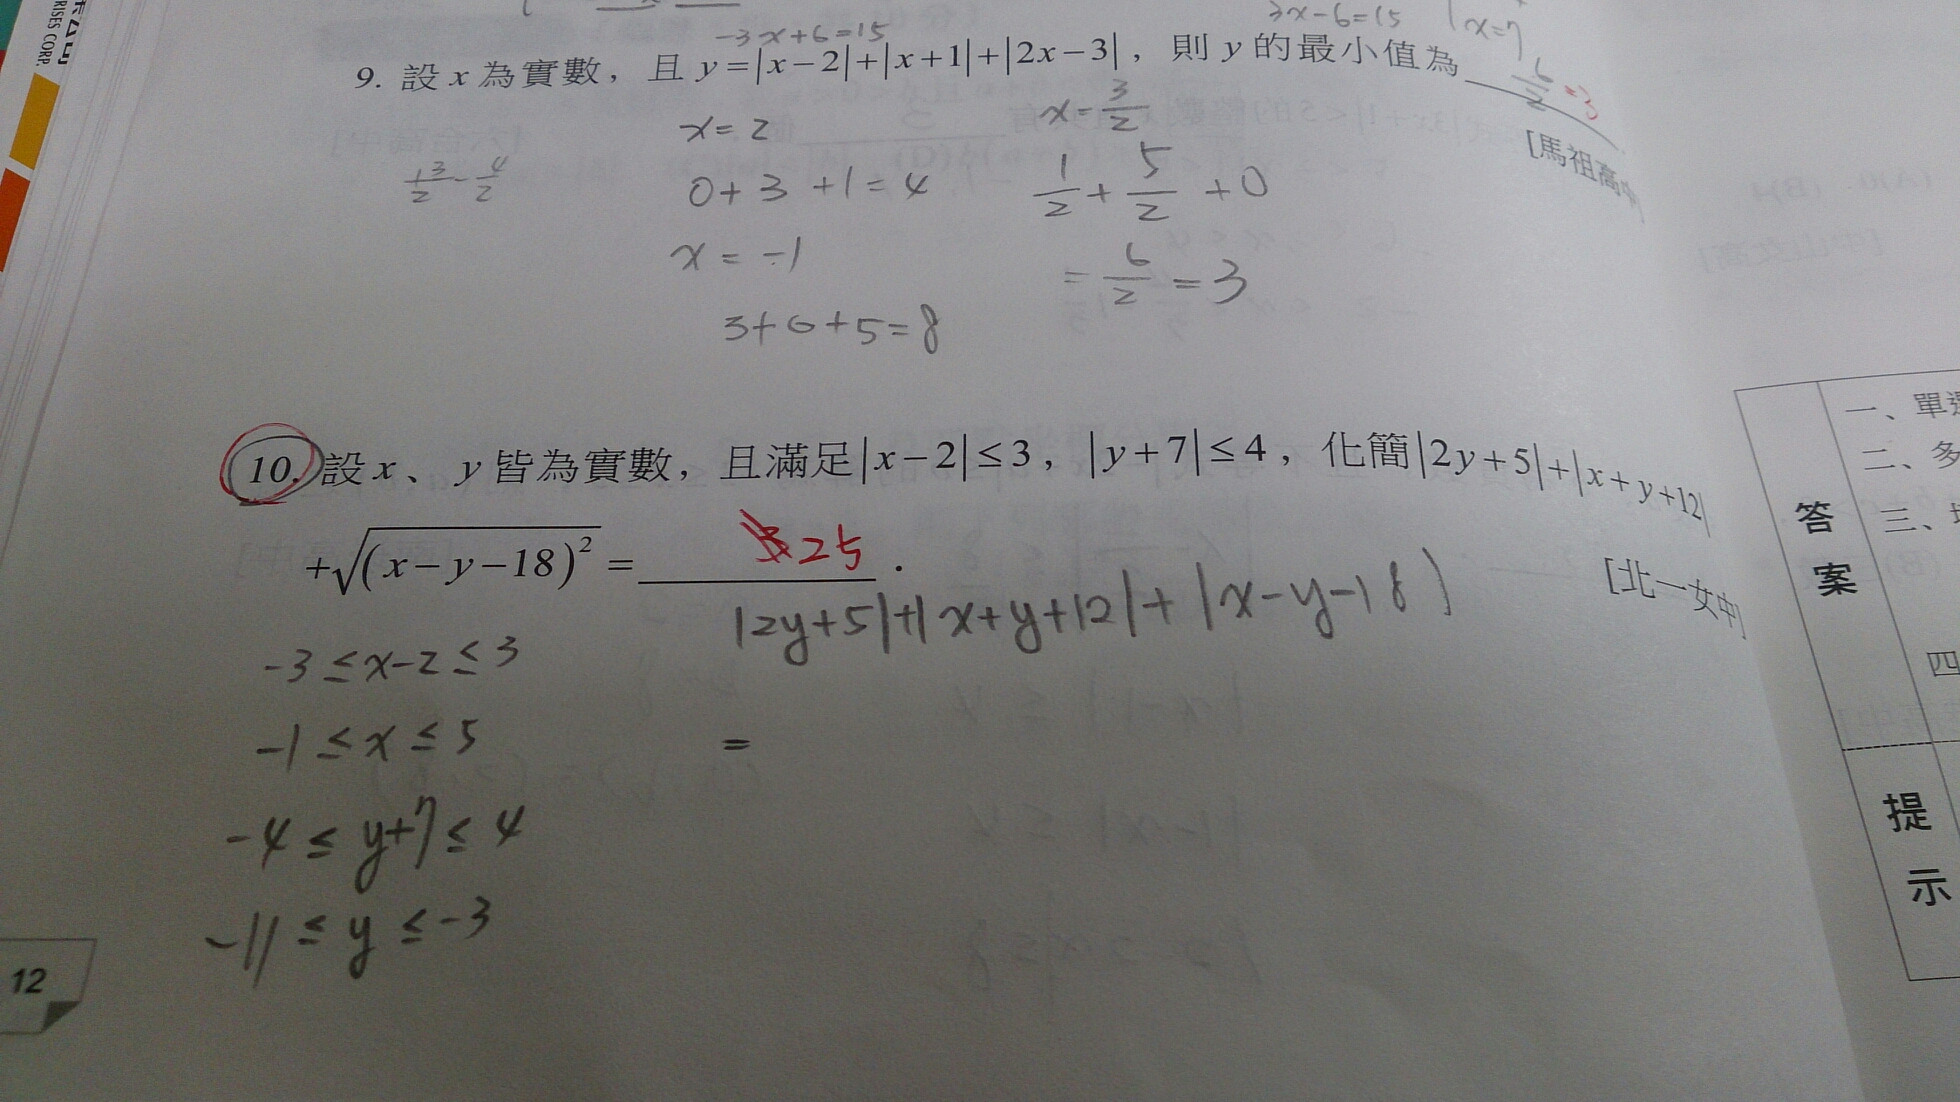 RISES CORP.
-3x+6=15
3x-6=15
x=7
9. 設 x 為實數，且 y=|x-2|+|x+1|+|2x-3|，則 y 的最小值為
6/2 =3
[馬祖高中]
x=2
x=3/2
13/2 - 4/2
0+3+1=4
1/2+5/2+0
x=-1
=6/2=3
3+0+5=8
10. 設 x、y 皆為實數，且滿足|x-2|≤3，|y+7|≤4，化簡|2y+5|+|x+y+12|
+√(x-y-18)²= 25 .
[北一女中]
|2y+5|+|x+y+12|+|x-y-18|
-3≤x-2≤3
-1≤x≤5
=
-4≤y+7≤4
-11≤y≤-3
12
答案
一、單選
二、多
三、填
四
提示